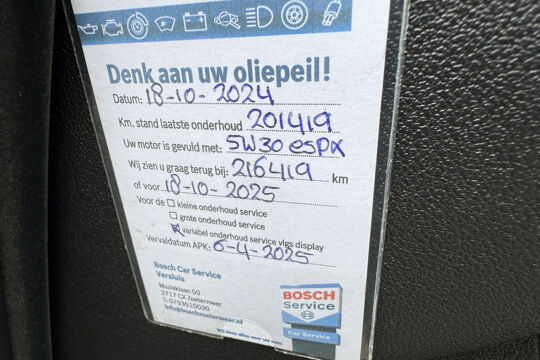 Denk aan uw oliepeil!
Datum: 18-10-2024
Km. stand laatste onderhoud 201419
Uw motor is gevuld met: 5W30 espx
Wij zien u graag terug bij: 216419 km
of voor 18-10-2025
Voor de ☐ kleine onderhoud service
☐ grote onderhoud service
☒ variabel onderhoud service vlgs display
Vervaldatum APK: 6-4-2025
Bosch Car Service
Versluis
Muzieklaan 50
2717 CX Zoetermeer
T: 0793510030
info@boschzoetermeer.nl
BOSCH
Service
Car Service